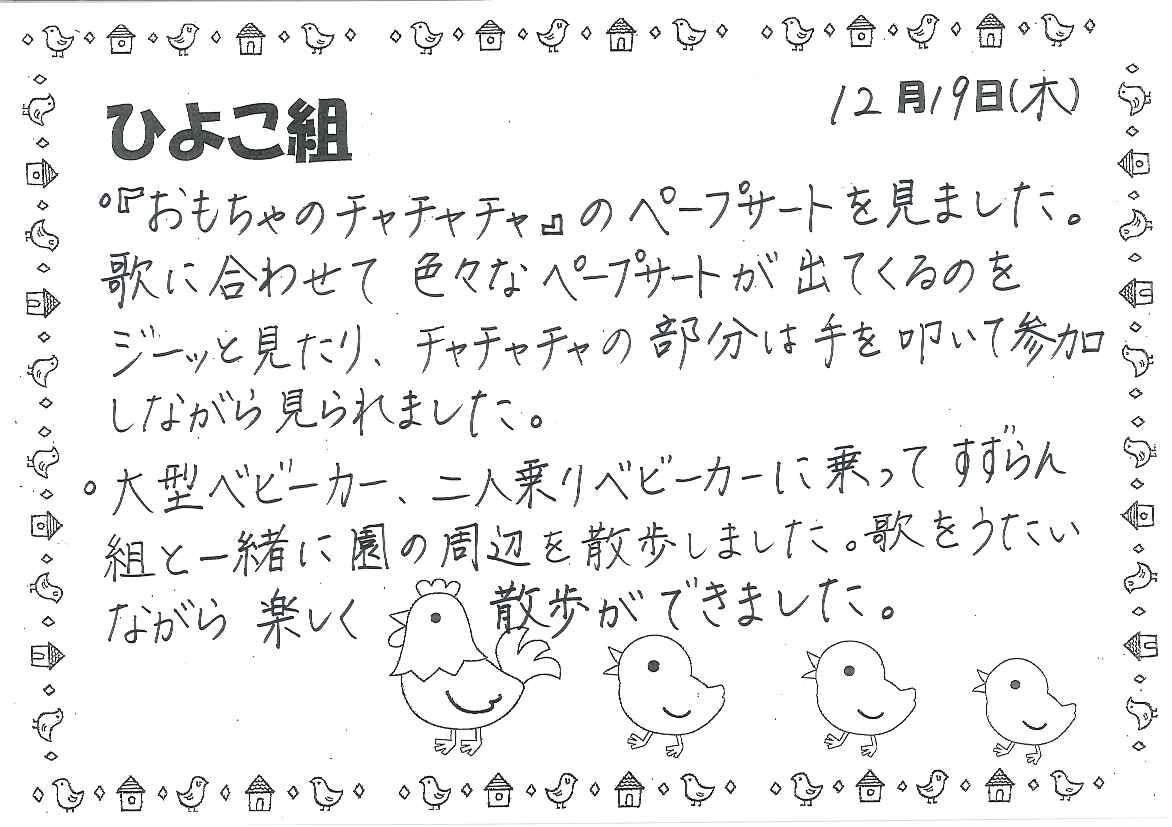 ひよこ組
12月19日(木)
。『おもちゃのチャチャチャ』のペープサートを見ました。
歌に合わせて色々なペープサートが出てくるのを
ジーッと見たり、チャチャチャの部分は手を叩いて参加
しながら見られました。
。大型ベビーカー、二人乗りベビーカーに乗ってすずらん
組と一緒に園の周辺を散歩しました。歌をうたい
ながら楽しく散歩ができました。